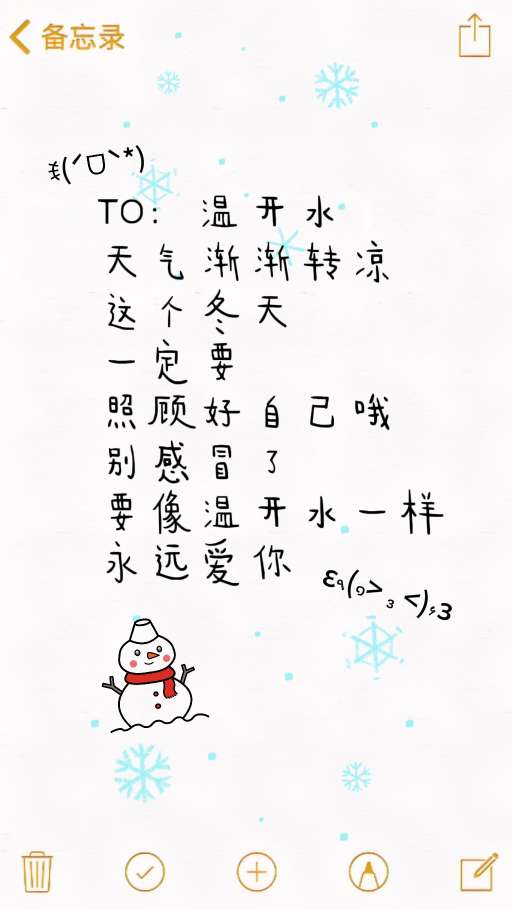 备忘录
TO: 温开水
天气渐渐转凉
这个冬天
一定要
照顾好自己哦
别感冒了
要像温开水一样
永远爱你